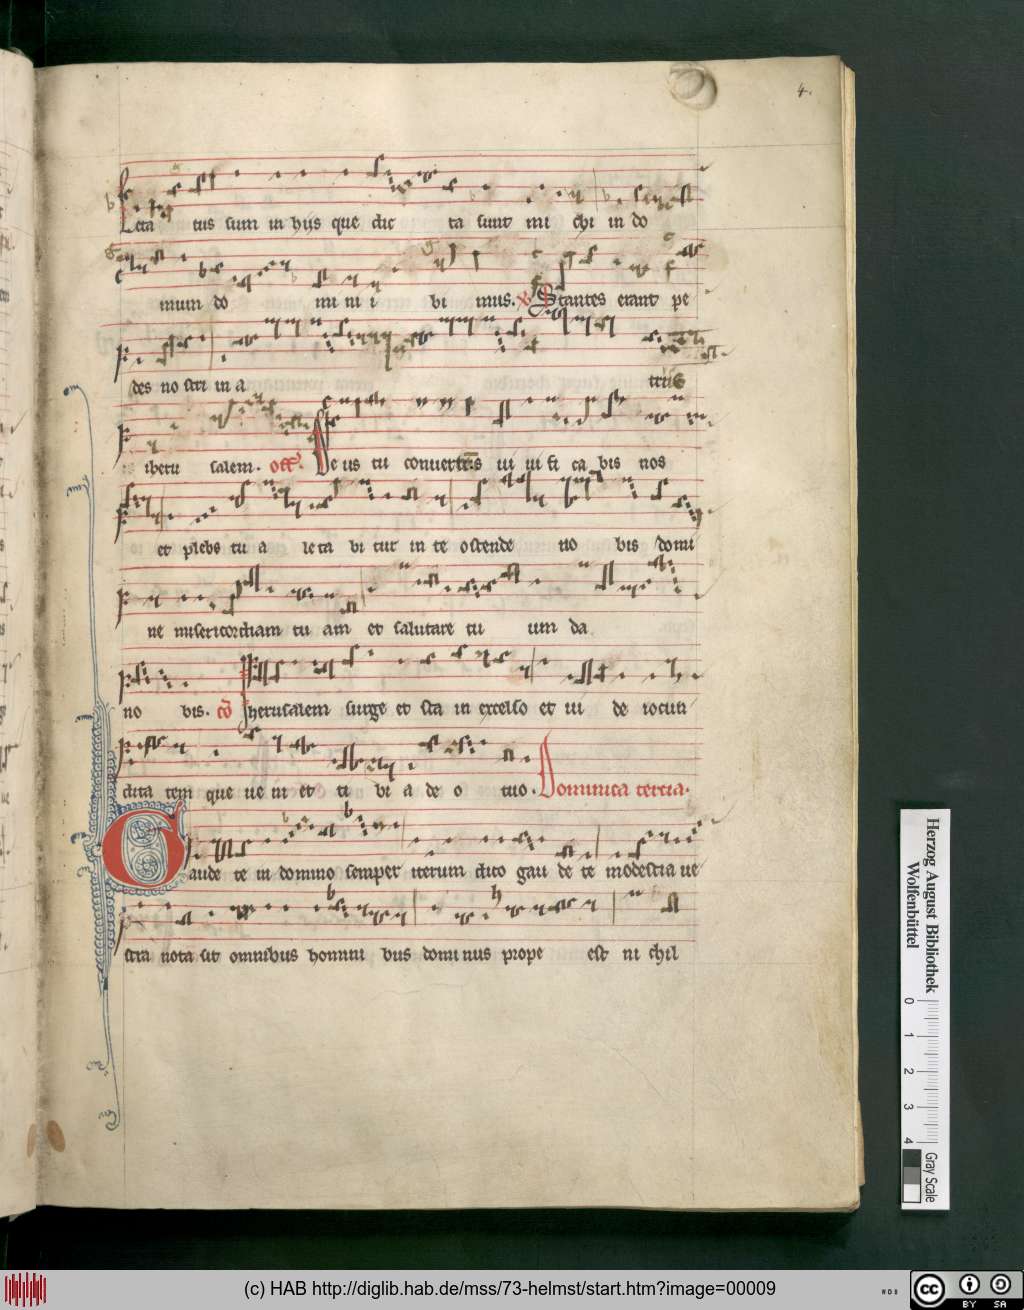 4.
Leta tus sum in hijs que dic ta sunt mi chi in do
mum do mi ni i bi mus. V Stantes erant pe
des no stri in a triis
iheru salem. off. Deus tu convertens uiuifi ca bis nos
et plebs tu a leta bi tur in te ostende no bis domi
ne misericordiam tu am et salutare tu um da
no bis. cō Jherusalem surge et sta in excelso et ui de iocun
dita tem que ue ni et ti bi a deo tuo. Dominica tercia.
Gaude te in domino semper iterum dico gau de te modestia ue
stra nota sit omnibus homini bus dominus prope est ni chil
Herzog August Bibliothek
Wolfenbüttel
0 1 2 3 4
Gray Scale
(c) HAB http://diglib.hab.de/mss/73-helmst/start.htm?image=00009
WDB
cc BY SA